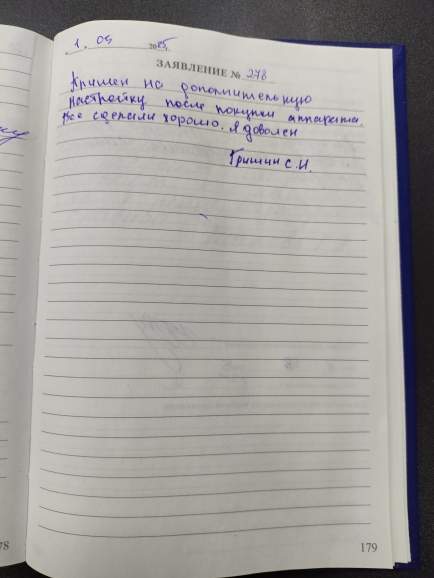 1. 09 2025г.
ЗАЯВЛЕНИЕ № 278
на дополнительную
настройку после покупки аппарата.
Все сделали хорошо. Я доволен
Гришин С.И.
78
179